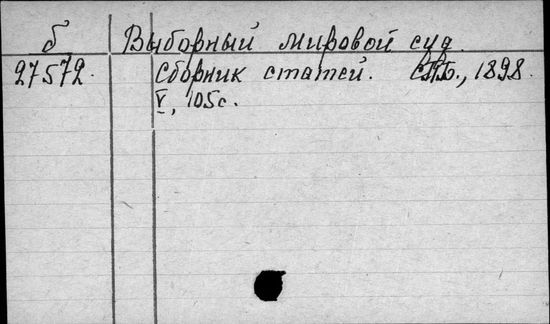 б Выборный мировой суд.
27572. Сборник статей. СПБ., 1898.
V, 105 с.